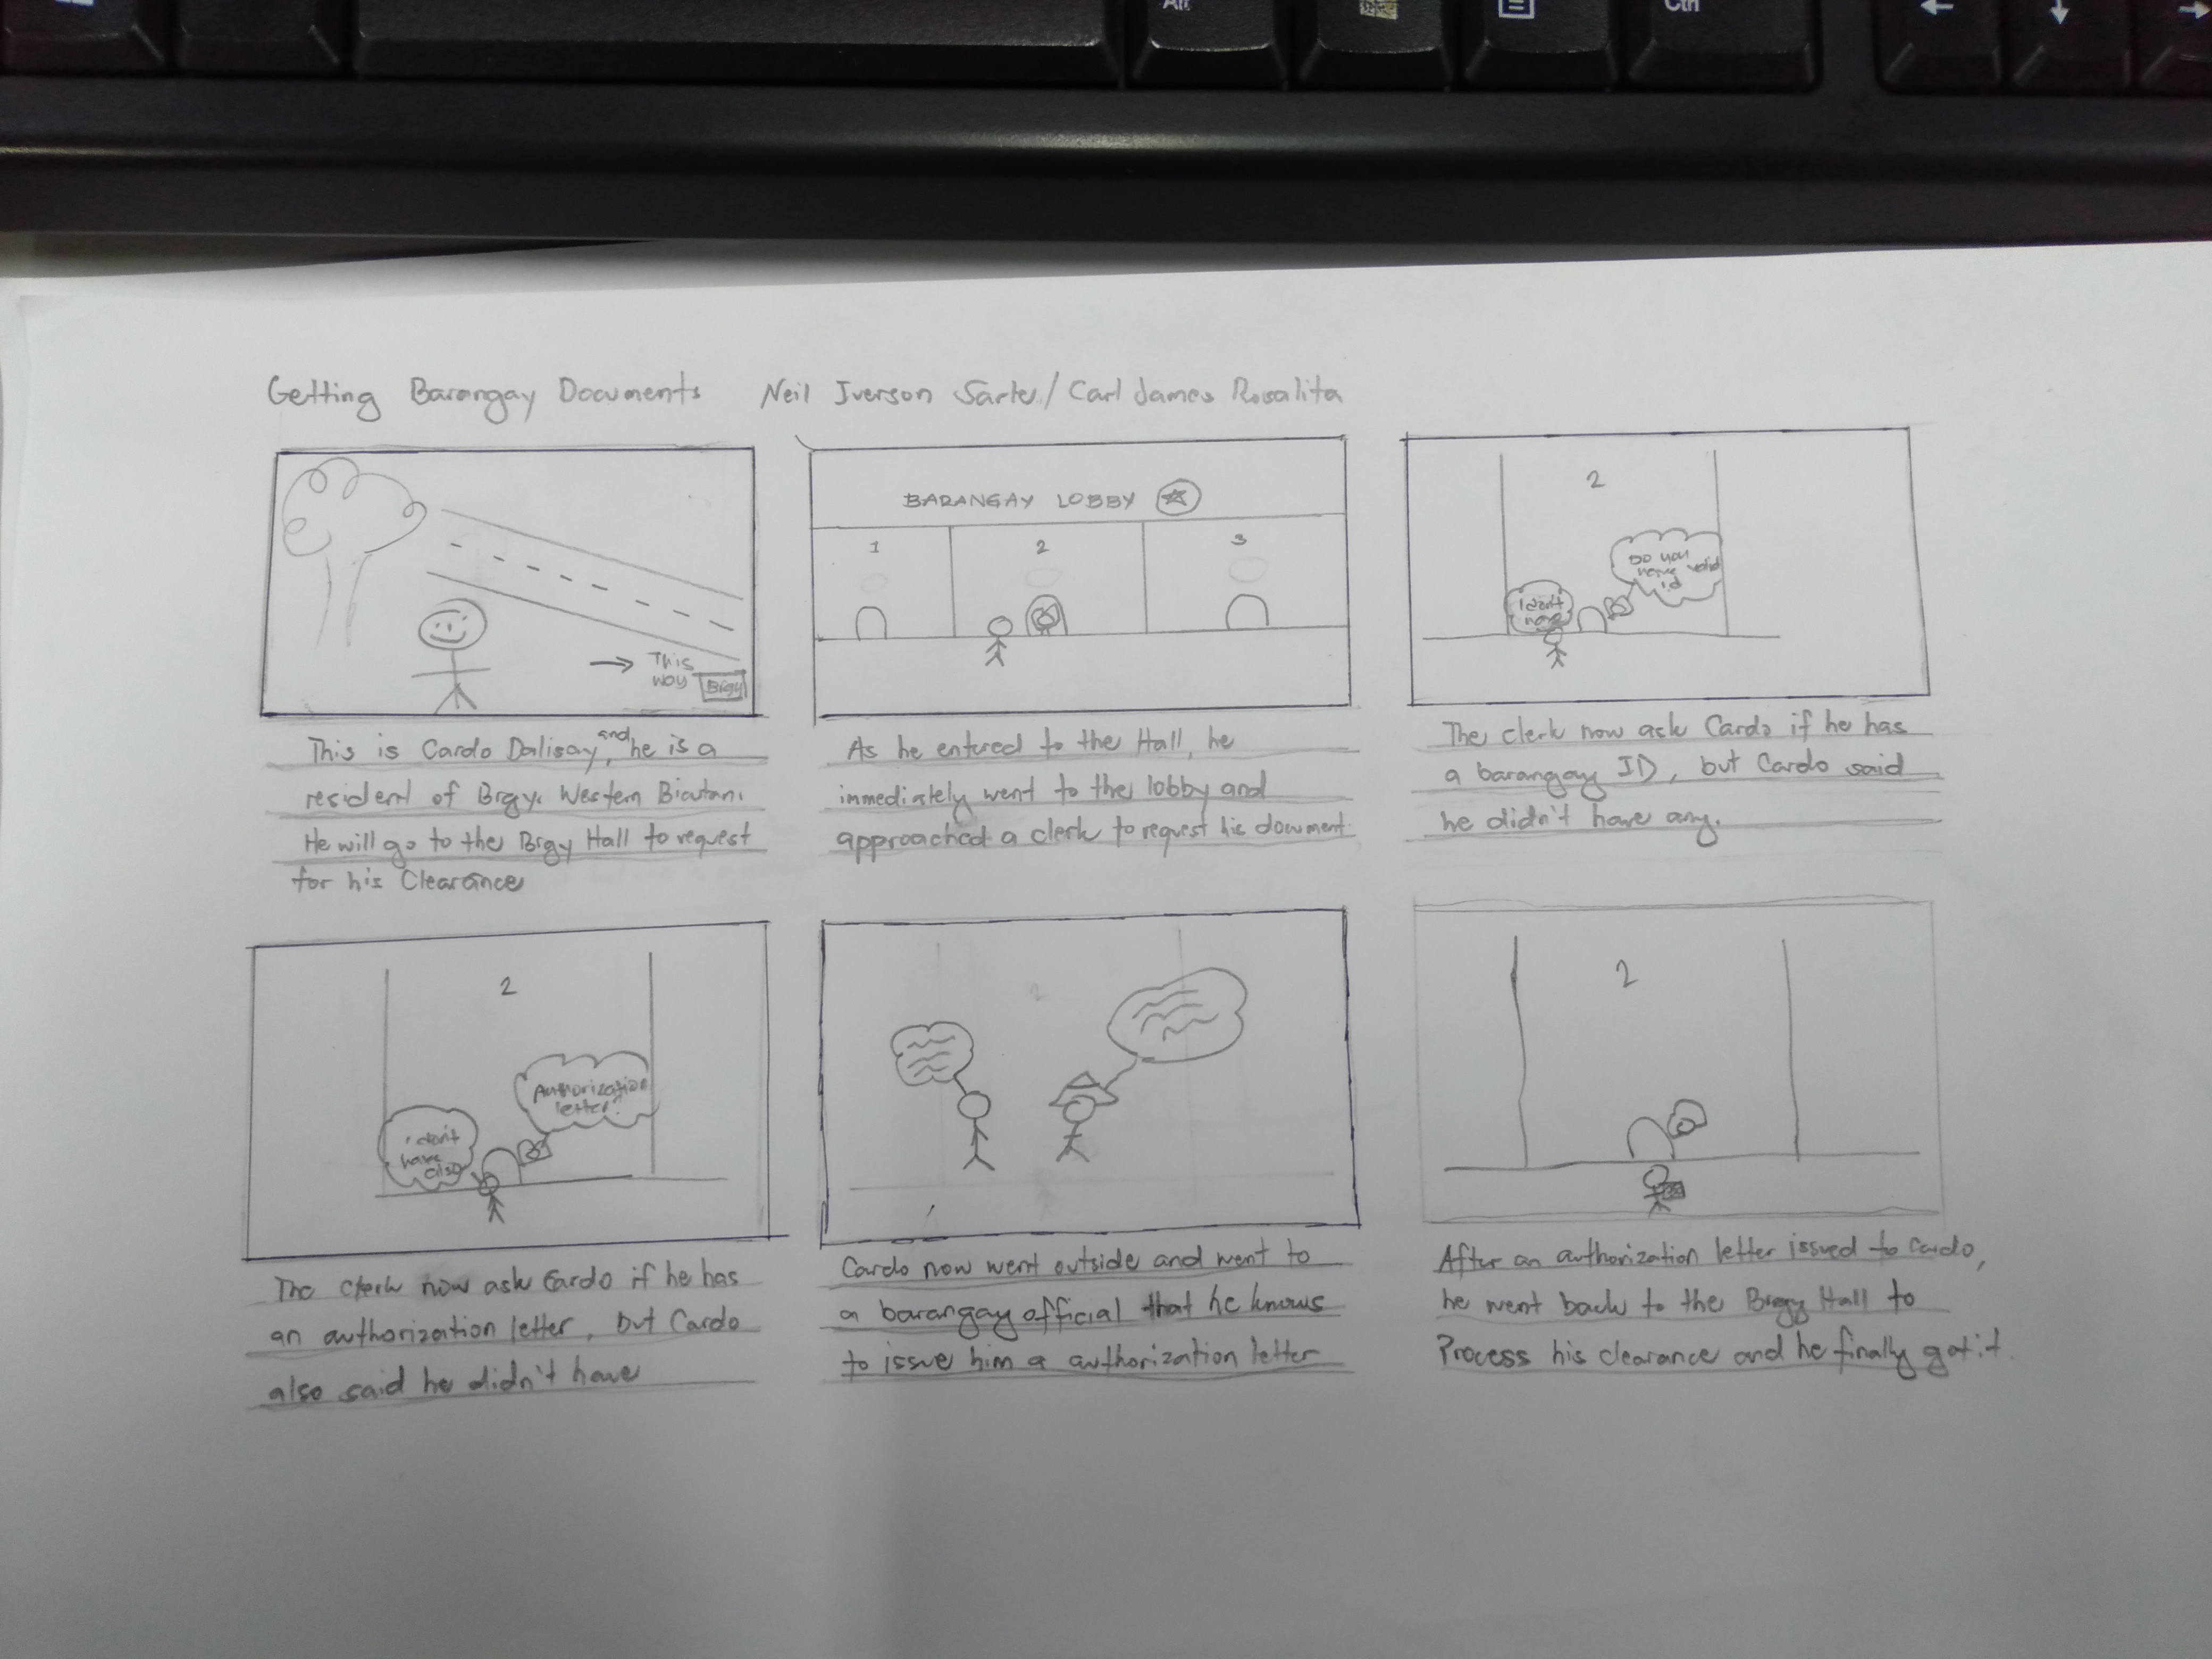 Alt
Ctrl
Getting Barangay Documents Neil Iverson / Carl James Rosalita
This
way
Brgy
This is Cardo Dalisay, and he is a
resident of Brgy. Western Bicutan.
He will go to the Brgy Hall to request
for his Clearance
BARANGAY LOBBY
1 2 3
As he entered to the Hall, he
immediately went to the lobby and
approached a clerk to request his document.
2
Do you
have valid
id
I don't
have
The clerk now ask Cardo if he has
a barangay ID, but Cardo said
he didn't have any.
2
Authorization
letter?
i don't
have
also
The clerk now ask Cardo if he has
an authorization letter, but Cardo
also said he didn't have
2
Cardo now went outside and went to
a barangay official that he knows
to issue him a authorization letter
2
After an authorization letter issued to Cardo,
he went back to the Brgy Hall to
Process his clearance and he finally got it.